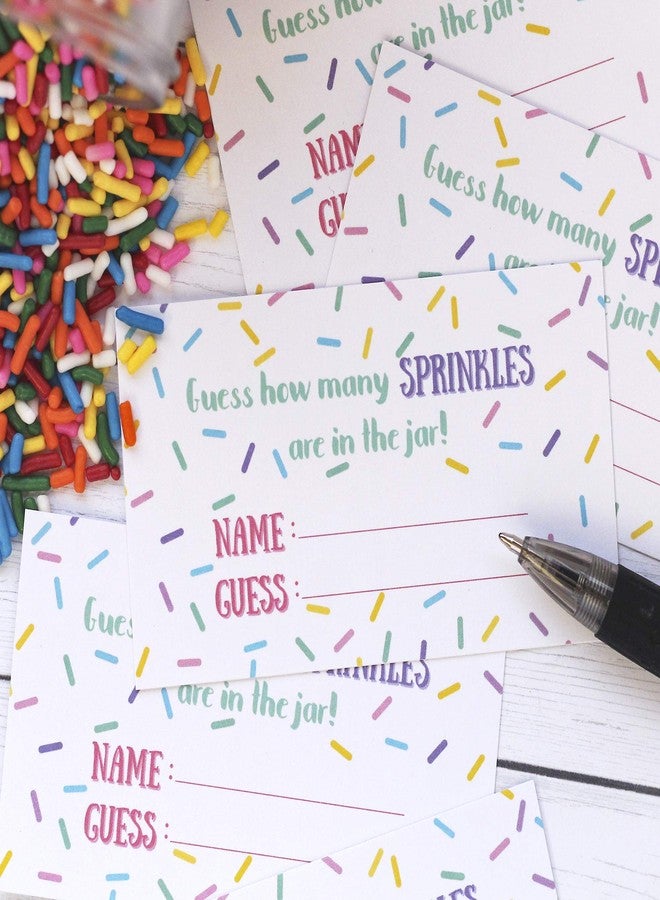 Guess how
are in the jar!
NAM
GU
Guess how many SP
are
jar!
Guess how many SPRINKLES
are in the jar!
NAME:
GUESS:
Guess
SPRINKLES
are in the jar!
NAME:
GUESS: